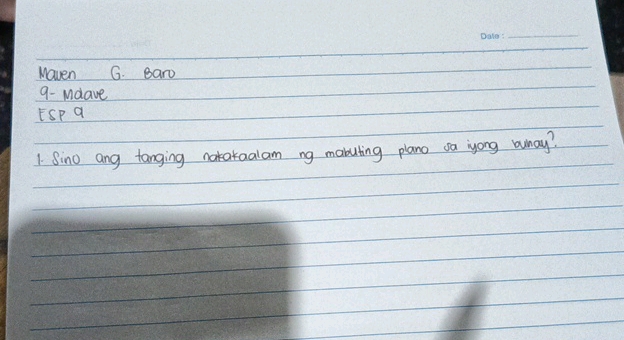 Date:
Maven G. Baro
9- Mdave
ESP 9
1. Sino ang tanging nakakaalam ng mabuting plano sa iyong buhay?